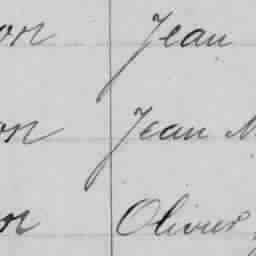 on Jean
on Jean N
on Olivier